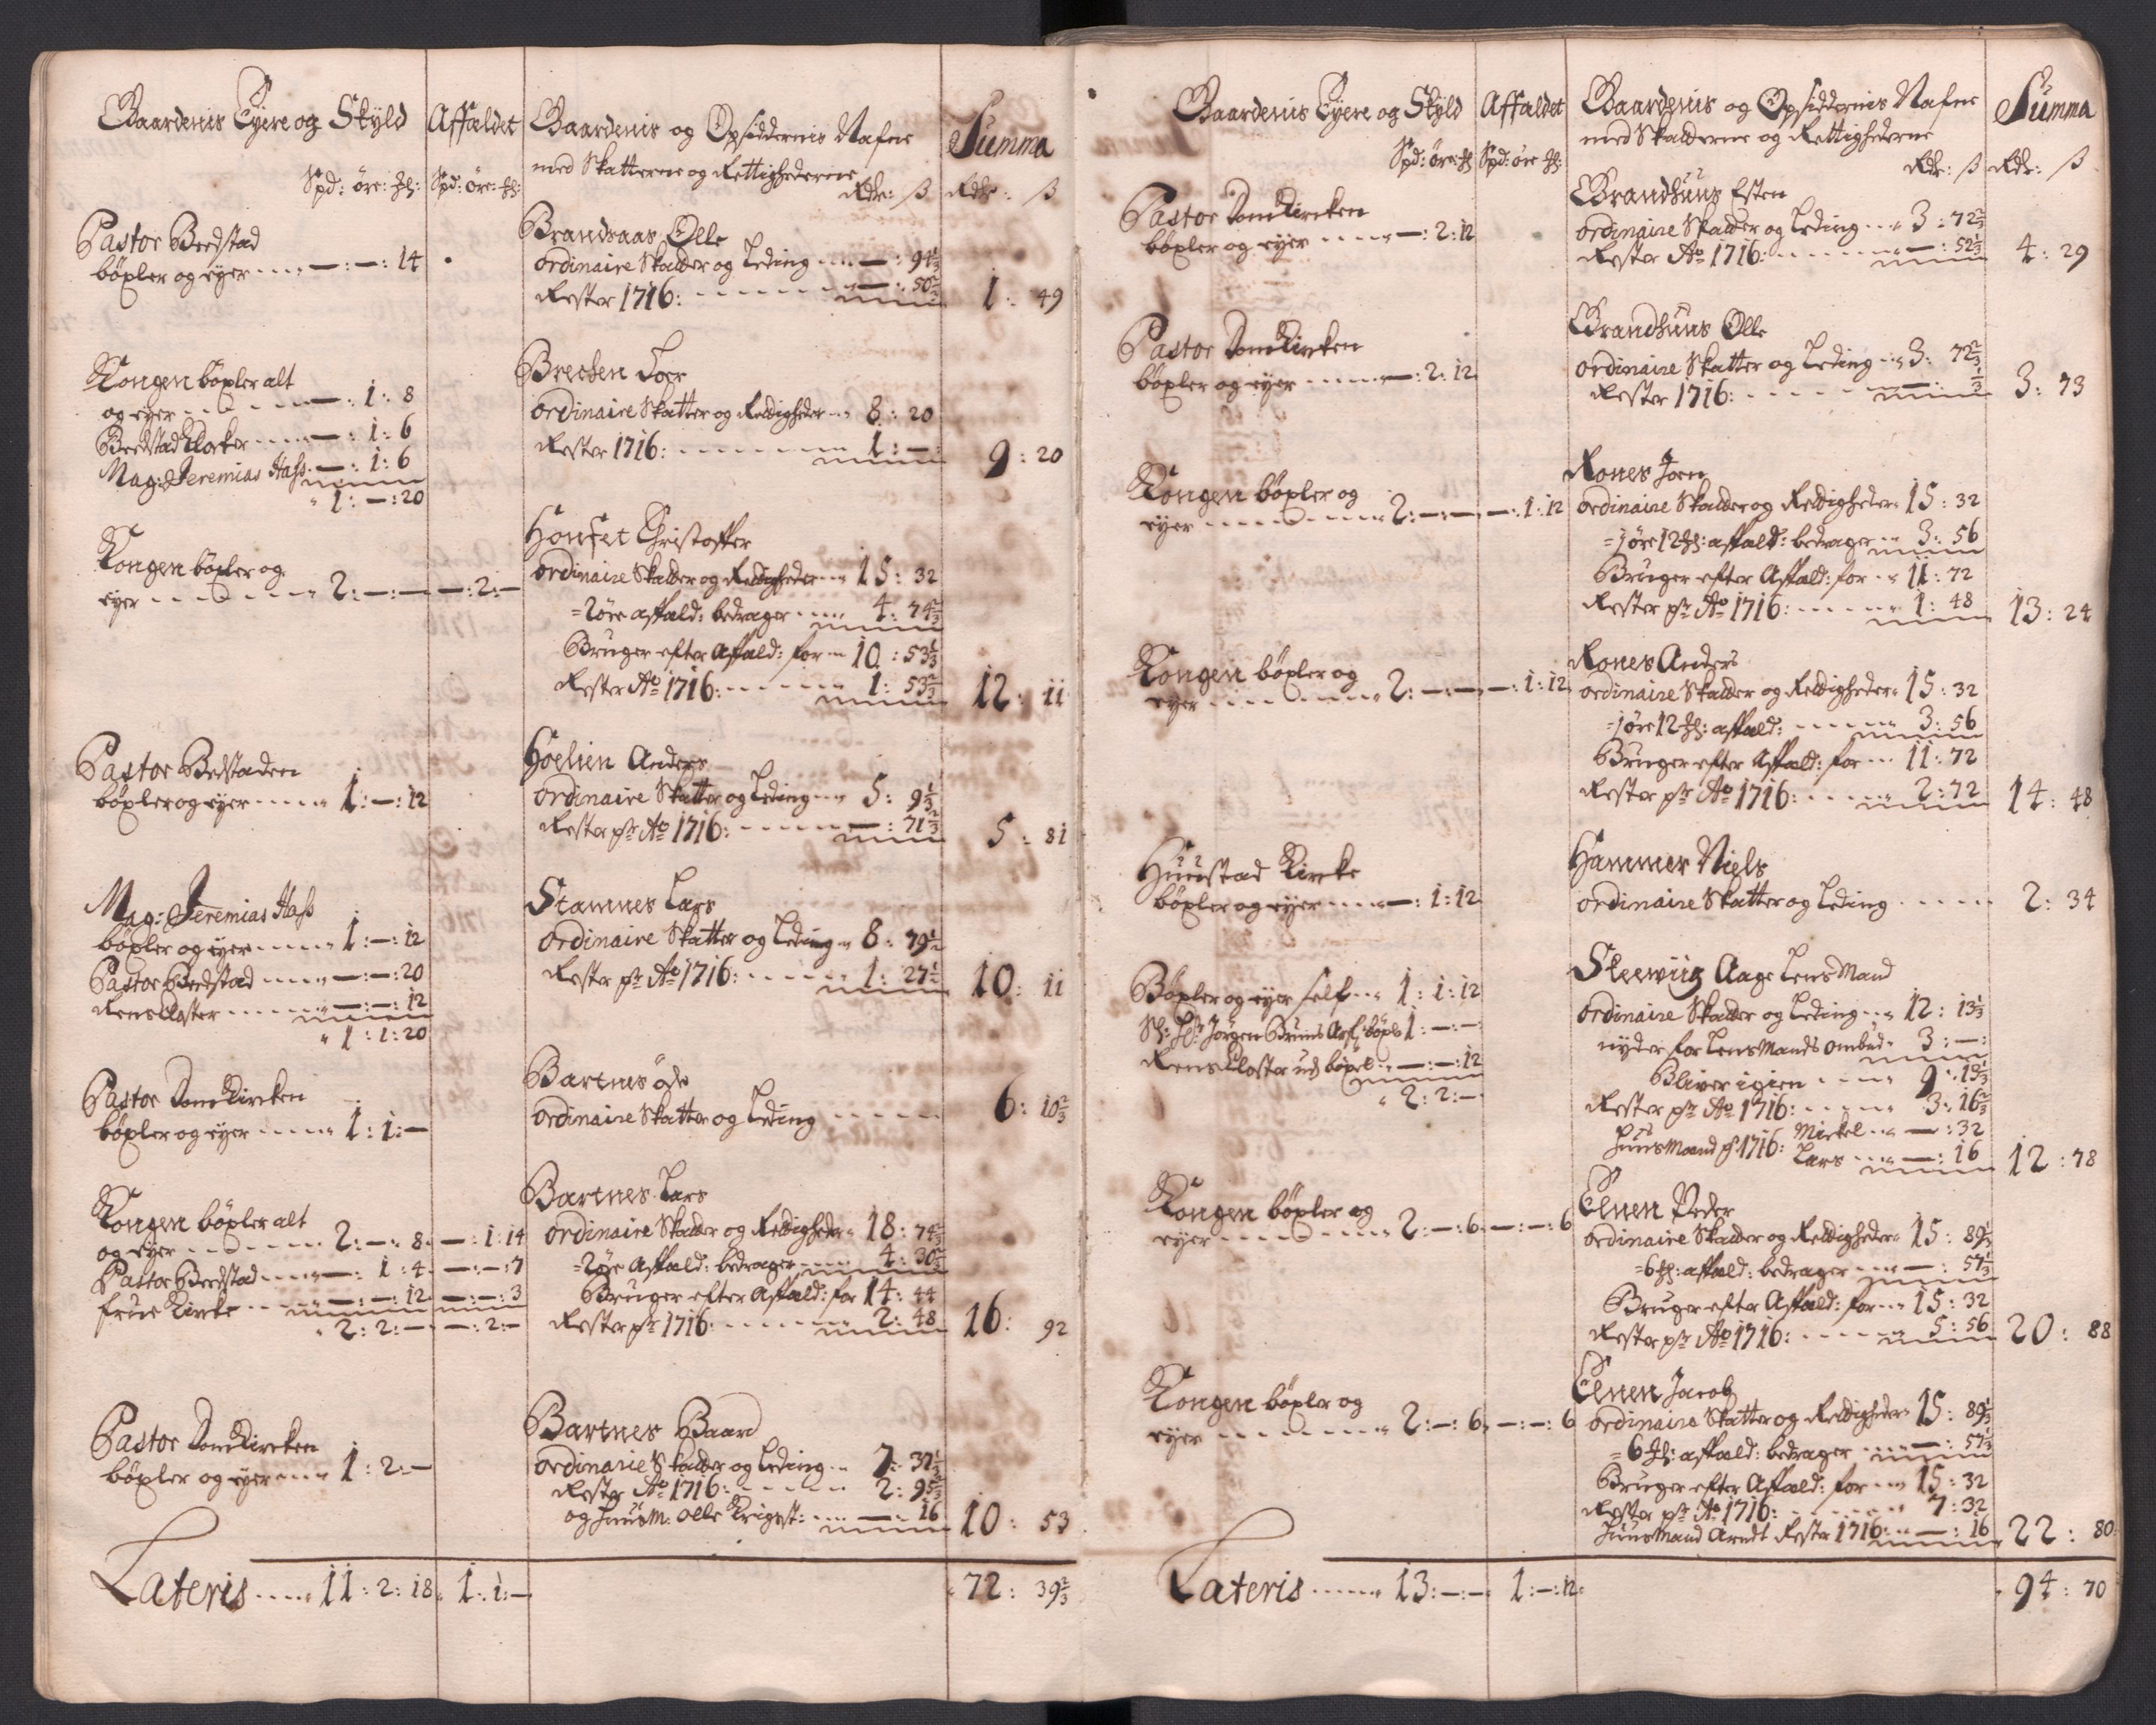 Gaardenis Eyere og Skyld
Affaldet
Gaardenis og Opsiddernis Nafne
med Skatterne og Rettighederne
Summa
Spd: øre: 
Spd: øre: 
Rdr: ß
Rdr: ß
Pastor Beedstad
bøxler og eyer — : — : 14
Brandsaas Olle
ordinaire Skatter og Leding — : 94 1/3
Rester 1716: — : 50 2/3
1 : 49
Kongen bøxler alt
og eyer — : 1 : 8
Beedstad Kircke — : 1 : 6
Mag: Jeremias Hass — : 1 : 6
1 : — : 20
Brechen Joer
ordinaire Skatter og Rettigheder 8 : 20
Rester 1716: 1 : —
9 : 20
Kongen bøxler og
eyer 2 : — : —
— : 2 : —
Homset Christoffer
ordinaire Skatter og Rettigheder 15 : 32
= 2 øre affald: bedrager 4 : 74 2/3
Bruger efter Affald: for 10 : 53 1/3
Rester Ao 1716: 1 : 53 2/3
12 : 11
Pastor Bedstaden
bøxler og eyer 1 : — : 12
Høelien Anders
ordinaire Skatter og Leding 5 : 9 1/3
Rester pr Ao 1716: — : 71 2/3
5 : 81
Mag: Jeremias Hass
bøxler og eyer 1 : — : 12
Pastor Beedstad — : — : 20
Rens Closter — : — : 12
1 : 1 : 20
Stamnes Lars
ordinaire Skatter og Leding 8 : 79 1/2
Rester pr Ao 1716: 1 : 27 1/2
10 : 11
Pastor DomKircken
bøxler og eyer 1 : 1 : —
Bartnes øde
ordinaire Skatter og Leding
6 : 10 2/3
Kongen bøxler alt
og eyer 2 : — : 8
— : 1 : 14
Pastor Beedstad — : 1 : 4
— : — : 7
frue Kircke — : — : 12
— : — : 3
2 : 2 : —
— : 2 : —
Bartnes Lars
ordinaire Skatter og Rettigheder 18 : 74 2/3
= 2 øre Affald: bedrager 4 : 30 2/3
Bruger efter Affald: for 14 : 44
Rester pr 1716: 2 : 48
16 : 92
Pastor DomKircken
bøxler og eyer 1 : 2 : —
Bartnes Baard
ordinarie Skatter og Leding 7 : 37 1/3
Rester Ao 1716: 2 : 95 2/3
og HuusM: Olle — : 16
10 : 53
Lateris 11 : 2 : 18
1 : 1 : —
72 : 39 2/3
Gaardenis Eyere og Skyld
Affaldet
Gaardenis og Opsiddernis Nafne
med Skatterne og Rettighederne
Summa
Spd: øre: 
Spd: øre 
Rdr: ß
Rdr: ß
Pastor DomKircken
bøxler og eyer — : 2 : 12
Brandhuus Esten
ordinaire Skatter og Leding 3 : 72 2/3
Rester Ao 1716: — : 52 1/3
4 : 29
Pastor DomKircken
bøxler og eyer — : 2 : 12
Brandhuus Olle
ordinaire Skatter og Leding 3 : 72 2/3
Rester 1716: — : 1/3
3 : 73
Kongen bøxler og
eyer 2 : — : —
— : 1 : 12
Rones Joen
ordinaire Skatter og Rettigheder 15 : 32
= 1 øre 12 affald: bedrager 3 : 56
Bruger efter Affald: for 11 : 72
Rester pr Ao 1716: 1 : 48
13 : 24
Kongen bøxler og
eyer 2 : — : —
— : 1 : 12
Rones Anders
ordinaire Skatter og Rettigheder 15 : 32
= 1 øre 12 affald: 3 : 56
Bruger efter Affald: for 11 : 72
Rester pr Ao 1716: 2 : 72
14 : 48
Huustad Kircke
bøxler og eyer — : 1 : 12
Hammer Niels
ordinaire Skatter og Leding
2 : 34
Bøxler og eyer self 1 : 1 : 12
Jørgen Bruns bøxl 1 : — : —
Rens Closter ud bøxel — : — : 12
2 : 2 : —
Aage LensMand
ordinaire Skatter og Leding 12 : 13 1/3
nyder for LensMands ombud 3 : —
Bliver igien 9 : 13 1/3
Rester pr Ao 1716: 3 : 16 2/3
HuusMand 1716: Mickel — : 32
Lars — : 16
12 : 78
Kongen bøxler og
eyer 2 : — : 6
— : — : 6
Elnen Peder
ordinaire Skatter og Rettigheder 15 : 89 1/3
= 6 affald: bedrager — : 57 1/3
Bruger efter Affald: for 15 : 32
Rester pr Ao 1716: 5 : 56
20 : 88
Kongen bøxler og
eyer 2 : — : 6
— : — : 6
Elnen Jacob
ordinaire Skatter og Rettigheder 15 : 89 1/3
= 6 affald: bedrager — : 57 1/3
Bruger efter Affald: for 15 : 32
Rester pr Ao 1716: 7 : 32
HuusMand Arndt Rester 1716 — : 16
22 : 80
Lateris 13 : — : —
1 : — : 12
94 : 70